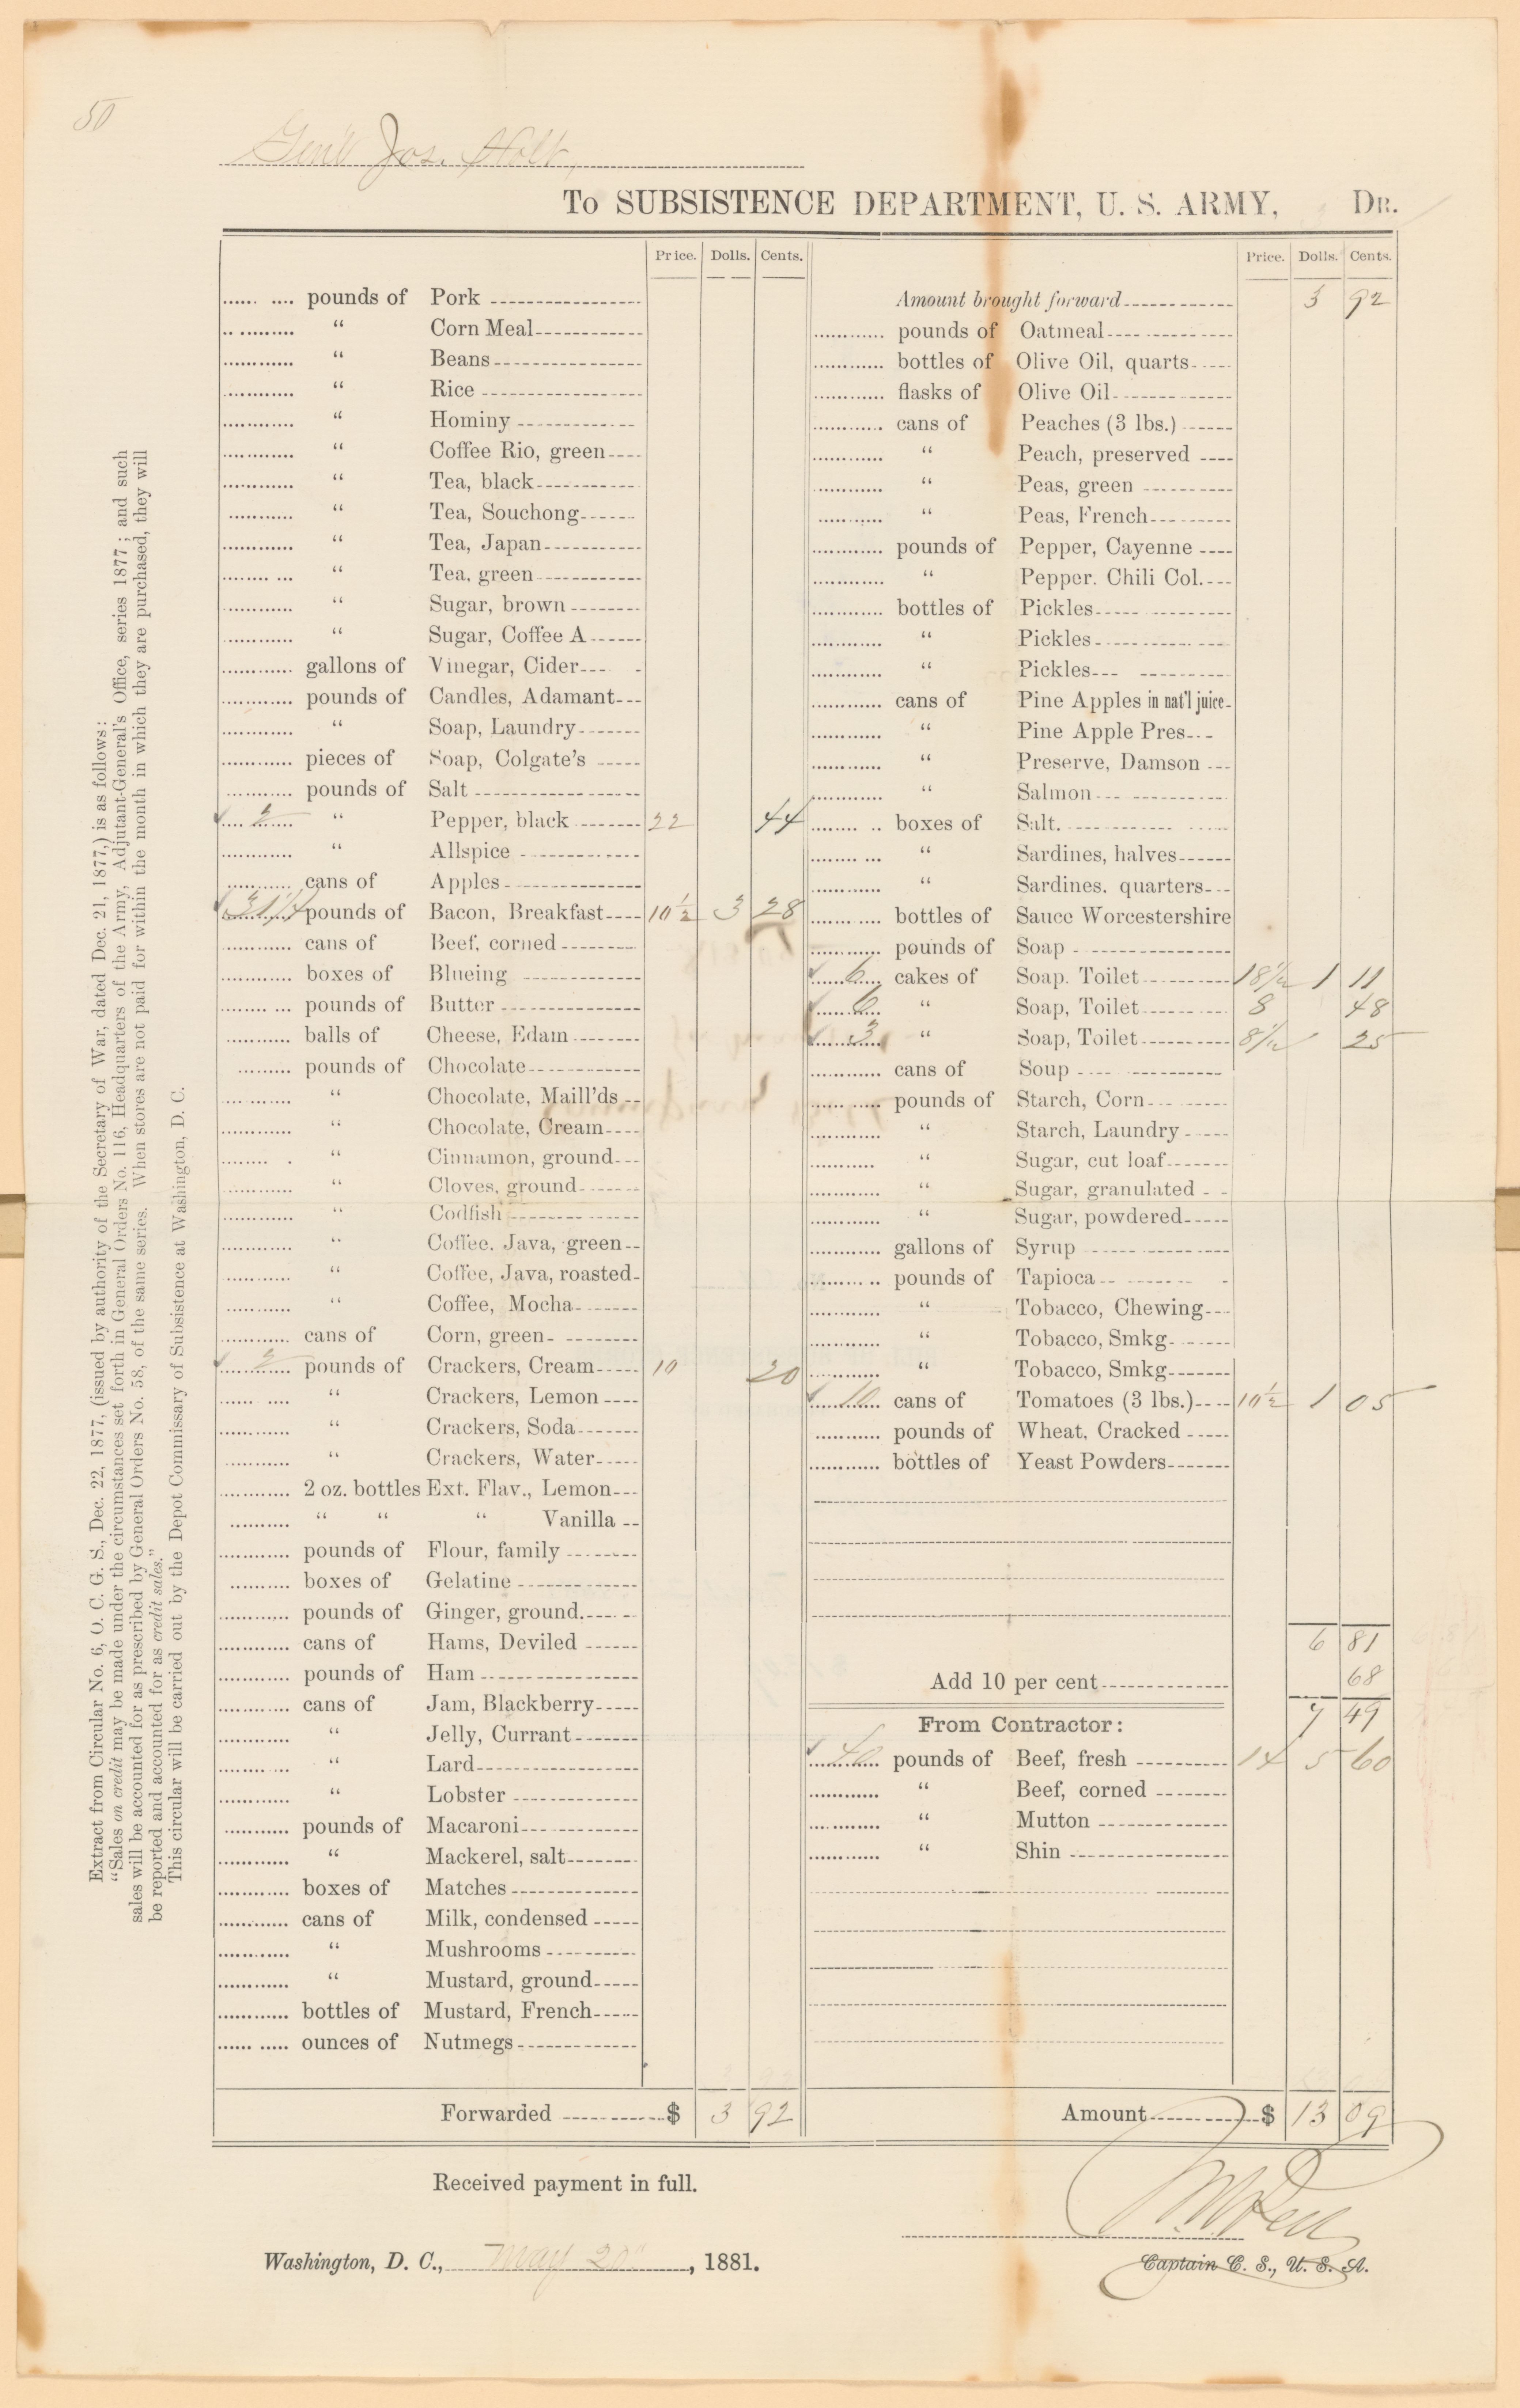 50
Gen'l Jos. Holt,
To SUBSISTENCE DEPARTMENT, U. S. ARMY, DR.
Price. Dolls. Cents.
pounds of Pork
“ Corn Meal
“ Beans
“ Rice
“ Hominy
“ Coffee Rio, green
“ Tea, black
“ Tea, Souchong
“ Tea, Japan
“ Tea, green
“ Sugar, brown
“ Sugar, Coffee A
gallons of Vinegar, Cider
pounds of Candles, Adamant
“ Soap, Laundry
pieces of Soap, Colgate's
pounds of Salt
2 “ Pepper, black 22 44
“ Allspice
cans of Apples
31 1/4 pounds of Bacon, Breakfast 10 1/2 3 28
cans of Beef, corned
boxes of Blueing
pounds of Butter
balls of Cheese, Edam
pounds of Chocolate
“ Chocolate, Maill'ds
“ Chocolate, Cream
“ Cinnamon, ground
“ Cloves, ground
“ Codfish
“ Coffee, Java, green
“ Coffee, Java, roasted
“ Coffee, Mocha
cans of Corn, green
2 pounds of Crackers, Cream 10 20
“ Crackers, Lemon
“ Crackers, Soda
“ Crackers, Water
2 oz. bottles Ext. Flav., Lemon
“ “ “ Vanilla
pounds of Flour, family
boxes of Gelatine
pounds of Ginger, ground.
cans of Hams, Deviled
pounds of Ham
cans of Jam, Blackberry
“ Jelly, Currant
“ Lard
“ Lobster
pounds of Macaroni
“ Mackerel, salt
boxes of Matches
cans of Milk, condensed
“ Mushrooms
“ Mustard, ground
bottles of Mustard, French
ounces of Nutmegs
Forwarded $ 3 92
Price. Dolls. Cents.
Amount brought forward 3 92
pounds of Oatmeal
bottles of Olive Oil, quarts
flasks of Olive Oil
cans of Peaches (3 lbs.)
“ Peach, preserved
“ Peas, green
“ Peas, French
pounds of Pepper, Cayenne
“ Pepper. Chili Col.
bottles of Pickles
“ Pickles
“ Pickles
cans of Pine Apples in nat'l juice
“ Pine Apple Pres
“ Preserve, Damson
“ Salmon
boxes of Salt.
“ Sardines, halves
“ Sardines. quarters
bottles of Sauce Worcestershire
pounds of Soap
6 cakes of Soap. Toilet 18 1/2 1 11
6 “ Soap, Toilet 8 48
3 “ Soap, Toilet 8 1/2 25
cans of Soup
pounds of Starch, Corn
“ Starch, Laundry
“ Sugar, cut loaf
“ Sugar, granulated
“ Sugar, powdered
gallons of Syrup
pounds of Tapioca
“ Tobacco, Chewing
“ Tobacco, Smkg
“ Tobacco, Smkg
10 cans of Tomatoes (3 lbs.) 10 1/2 1 05
pounds of Wheat, Cracked
bottles of Yeast Powders
6 81
Add 10 per cent 68
7 49
From Contractor:
40 pounds of Beef, fresh 14 5 60
“ Beef, corned
“ Mutton
“ Shin
Amount $ 13 09
Received payment in full.
Washington, D. C., May 20", 1881.
Captain C. S., U. S. A.
Extract from Circular No. 6, O. C. G. S., Dec. 22, 1877, (issued by authority of the Secretary of War, dated Dec. 21, 1877,) is as follows:
“Sales on credit may be made under the circumstances set forth in General Orders No. 116, Headquarters of the Army, Adjutant-General's Office, series 1877; and such
sales will be accounted for as prescribed by General Orders No. 58, of the same series. When stores are not paid for within the month in which they are purchased, they will
be reported and accounted for as credit sales.”
This circular will be carried out by the Depot Commissary of Subsistence at Washington, D. C.